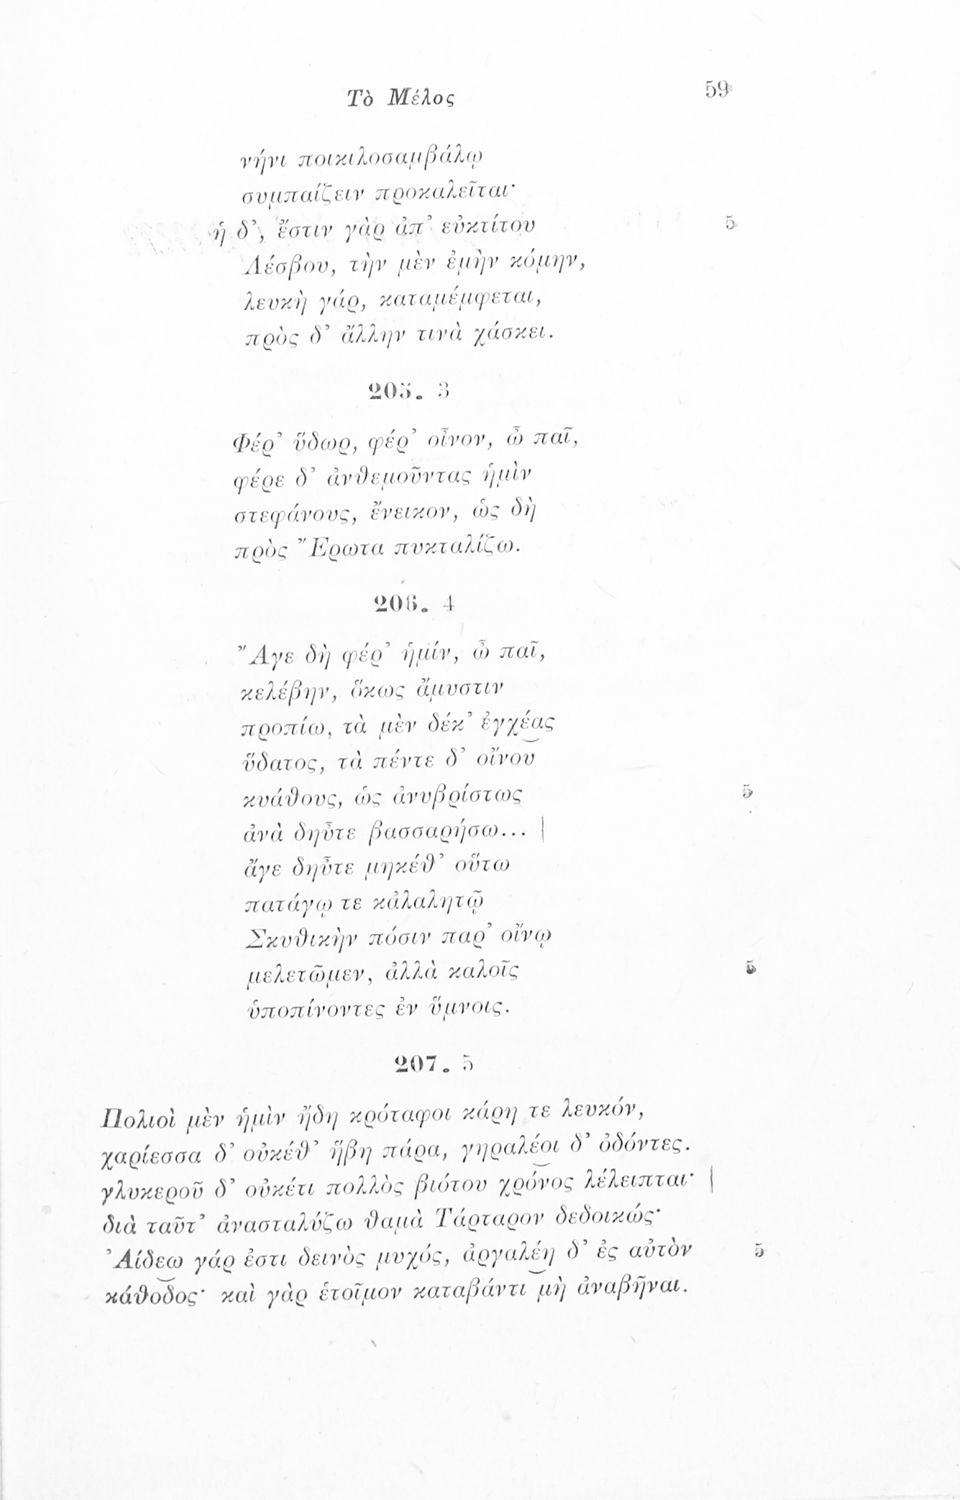 Τὸ Μέλος 59
νήνι ποικιλοσαμβάλῳ
συμπαίζειν προκαλεῖται·
ἡ δ’, ἔστιν γὰρ ἀπ’ εὐκτίτου 5
Λέσβου, τὴν μὲν ἐμὴν κόμην,
λευκὴ γάρ, καταμέμφεται,
πρὸς δ’ ἄλλην τινὰ χάσκει.
205. 3
Φέρ’ ὕδωρ, φέρ’ οἶνον, ὦ παῖ,
φέρε δ’ ἀνθεμοῦντας ἡμὶν
στεφάνους, ἔνεικον, ὡς δὴ
πρὸς Ἔρωτα πυκταλίζω.
206. 4
Ἄγε δὴ φέρ’ ἡμίν, ὦ παῖ,
κελέβην, ὅκως ἄμυστιν
προπίω, τὰ μὲν δέκ’ ἐγχέας
ὕδατος, τὰ πέντε δ’ οἴνου
κυάθους, ὡς ἀνυβρίστως 5
ἀνὰ δηὖτε βασσαρήσω... |
ἄγε δηὖτε μηκέθ’ οὕτω
πατάγῳ τε κἀλαλητῷ
Σκυθικὴν πόσιν παρ’ οἴνῳ
μελετῶμεν, ἀλλὰ καλοῖς 5
ὑποπίνοντες ἐν ὕμνοις.
207. 5
Πολιοὶ μὲν ἡμὶν ἤδη κρόταφοι κάρη τε λευκόν,
χαρίεσσα δ’ οὐκέθ’ ἥβη πάρα, γηραλέοι δ’ ὀδόντες.
γλυκεροῦ δ’ οὐκέτι πολλὸς βιότου χρόνος λέλειπται· |
διὰ ταῦτ’ ἀνασταλύζω θαμὰ Τάρταρον δεδοικώς·
Ἀίδεω γάρ ἐστι δεινὸς μυχός, ἀργαλέη δ’ ἐς αὐτὸν 5
κάθοδος· καὶ γὰρ ἑτοῖμον καταβάντι μὴ ἀναβῆναι.